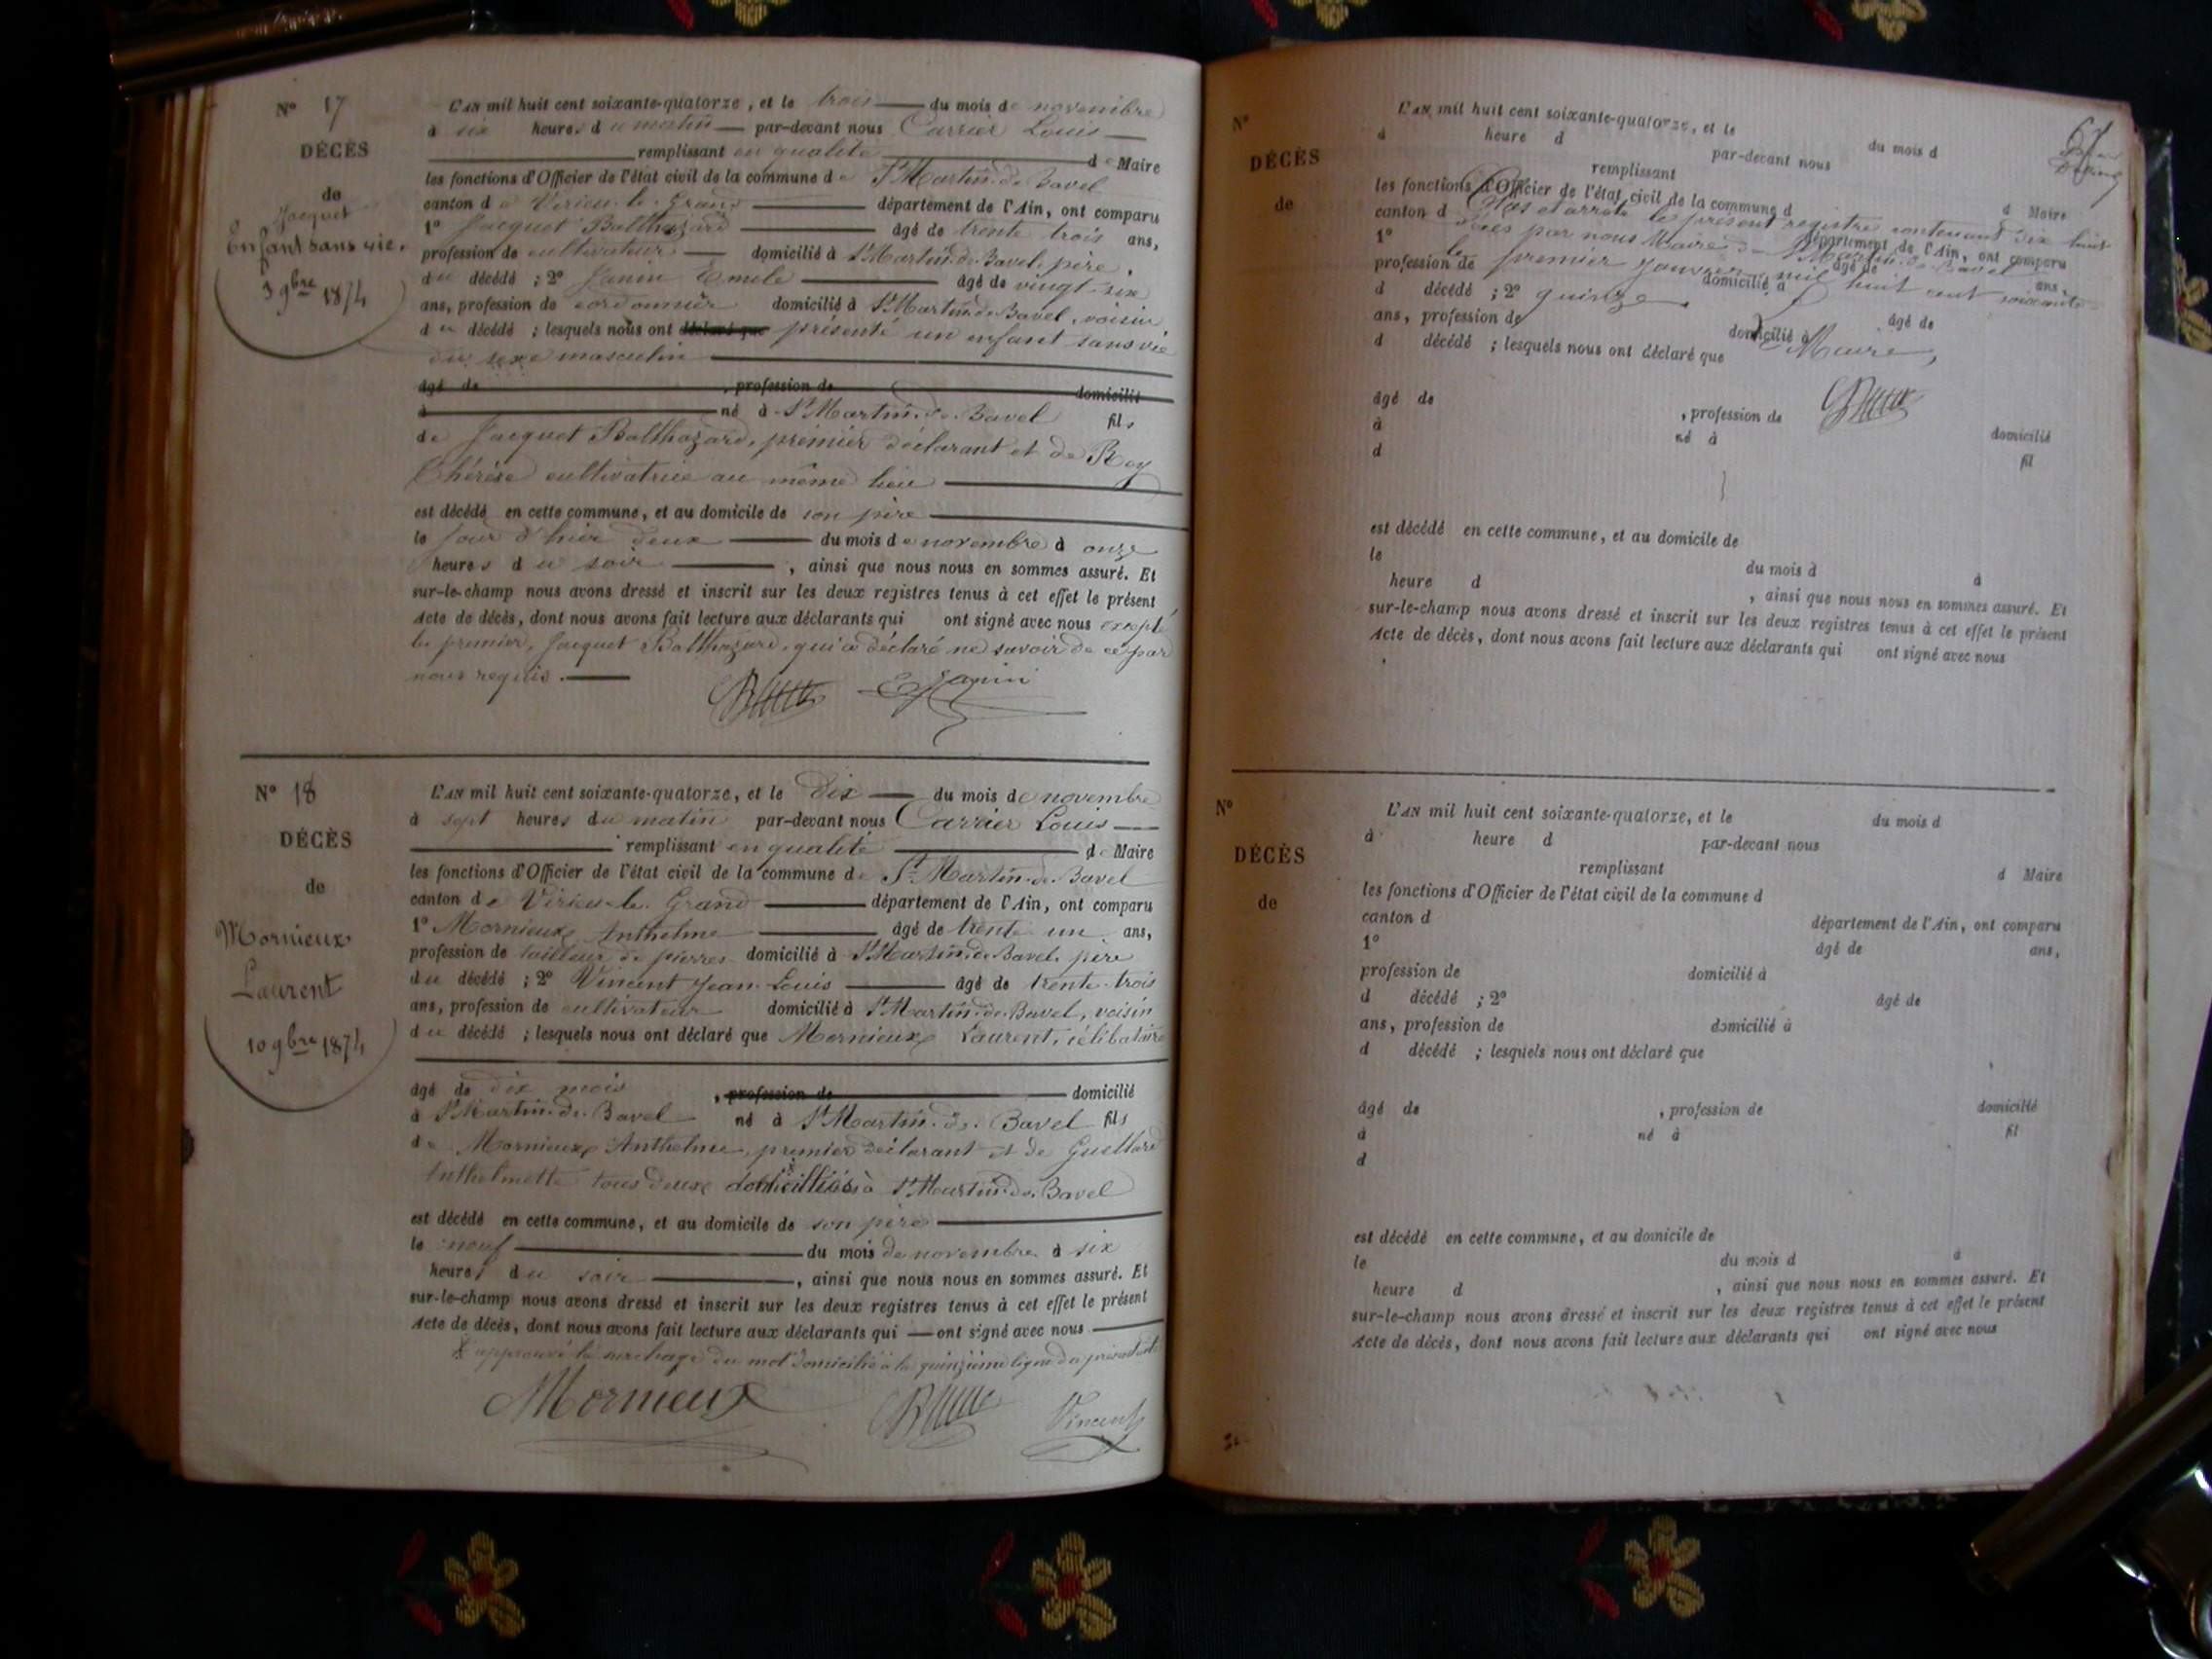 N° 17
DÉCÈS
de
Jacquet
Enfant sans vie.
3 9bre 1874
L'AN mil huit cent soixante-quatorze, et le trois du mois de novembre
à six heures du matin par-devant nous Carrier Louis
remplissant en qualité de Maire
les fonctions d'Officier de l'état civil de la commune de St Martin-de-Bavel
canton de Virieu-le-Grand département de l'Ain, ont comparu
1° Jacquet Balthazard âgé de trente trois ans,
profession de cultivateur domicilié à St Martin-de-Bavel, père
du décédé ; 2° Janin Emile âgé de vingt-six
ans, profession de cordonnier domicilié à St Martin-de-Bavel, voisin
du décédé ; lesquels nous ont déclaré que présenté un enfant sans vie
du sexe masculin
âgé de , profession de domicilié
à né à St Martin-de-Bavel fils
de Jacquet Balthazard, premier déclarant et de Roy
Thérèse cultivatrice au même lieu
est décédé en cette commune, et au domicile de son père
le jour d'hier deux du mois de novembre à onze
heures du soir , ainsi que nous nous en sommes assuré. Et
sur-le-champ nous avons dressé et inscrit sur les deux registres tenus à cet effet le présent
Acte de décès, dont nous avons fait lecture aux déclarants qui ont signé avec nous excepté
le premier, Jacquet Balthazard, qui a déclaré ne savoir de ce par
nous requis.
E Janin
N° 18
DÉCÈS
de
Mornieux
Laurent
10 9bre 1874
L'AN mil huit cent soixante-quatorze, et le dix du mois de novembre
à sept heures du matin par-devant nous Carrier Louis
remplissant en qualité de Maire
les fonctions d'Officier de l'état civil de la commune de St Martin-de-Bavel
canton de Virieu-le-Grand département de l'Ain, ont comparu
1° Mornieux Anthelme âgé de trente un ans,
profession de tailleur de pierres domicilié à St Martin-de-Bavel, père
du décédé ; 2° Vincent Jean Louis âgé de trente-trois
ans, profession de cultivateur domicilié à St Martin-de-Bavel, voisin
du décédé ; lesquels nous ont déclaré que Mornieux Laurent, célibataire
âgé de dix mois , profession de domicilié
à St Martin-de-Bavel né à St Martin-de-Bavel fils
de Mornieux Anthelme, premier déclarant et de Guettard
Anthelmette tous deux domicilliés à St Martin-de-Bavel
est décédé en cette commune, et au domicile de son père
le neuf du mois de novembre à six
heures du soir , ainsi que nous nous en sommes assuré. Et
sur-le-champ nous avons dressé et inscrit sur les deux registres tenus à cet effet le présent
Acte de décès, dont nous avons fait lecture aux déclarants qui ont signé avec nous
approuvé la surcharge du mot domicilié à la quinzième ligne du présent acte
Mornieux
Vincent
67
N°
DÉCÈS
de
L'AN mil huit cent soixante-quatorze, et le du mois d
à heure d par-devant nous
remplissant d Maire
les fonctions d'Officier de l'état civil de la commune d
Clos et arrêté le présent registre contenant dix huit
canton d département de l'Ain, ont comparu
décès par nous Maire de St Martin-de-Bavel
1° âgé de ans,
le premier janvier mil huit cent soixante
profession de domicilié à
quinze.
d décédé ; 2° âgé de
ans, profession de domicilié à
Le Maire,
d décédé ; lesquels nous ont déclaré que
âgé de , profession de domicilié
à né à fil
d
est décédé en cette commune, et au domicile de
le du mois d à
heure d , ainsi que nous nous en sommes assuré. Et
sur-le-champ nous avons dressé et inscrit sur les deux registres tenus à cet effet le présent
Acte de décès, dont nous avons fait lecture aux déclarants qui ont signé avec nous
N°
DÉCÈS
de
L'AN mil huit cent soixante-quatorze, et le du mois d
à heure d par-devant nous
remplissant d Maire
les fonctions d'Officier de l'état civil de la commune d
canton d département de l'Ain, ont comparu
1° âgé de ans,
profession de domicilié à
d décédé ; 2° âgé de
ans, profession de domicilié à
d décédé ; lesquels nous ont déclaré que
âgé de , profession de domicilié
à né à fil
d
est décédé en cette commune, et au domicile de
le du mois d à
heure d , ainsi que nous nous en sommes assuré. Et
sur-le-champ nous avons dressé et inscrit sur les deux registres tenus à cet effet le présent
Acte de décès, dont nous avons fait lecture aux déclarants qui ont signé avec nous